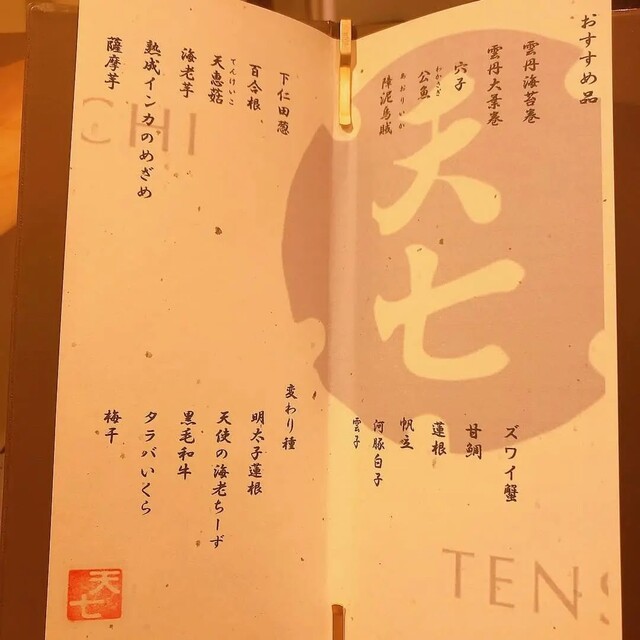 おすすめ品
雲丹海苔巻
雲丹大葉巻
穴子
公魚
わかさぎ
障泥烏賊
あおりいか
ズワイ蟹
甘鯛
蓮根
帆立
河豚白子
雲子
下仁田葱
百合根
天恵菇
てんけいこ
海老芋
熟成インカのめざめ
薩摩芋
変わり種
明太子蓮根
天使の海老ちーず
黒毛和牛
タラバいくら
梅干
天七
TENS
CHI
天七